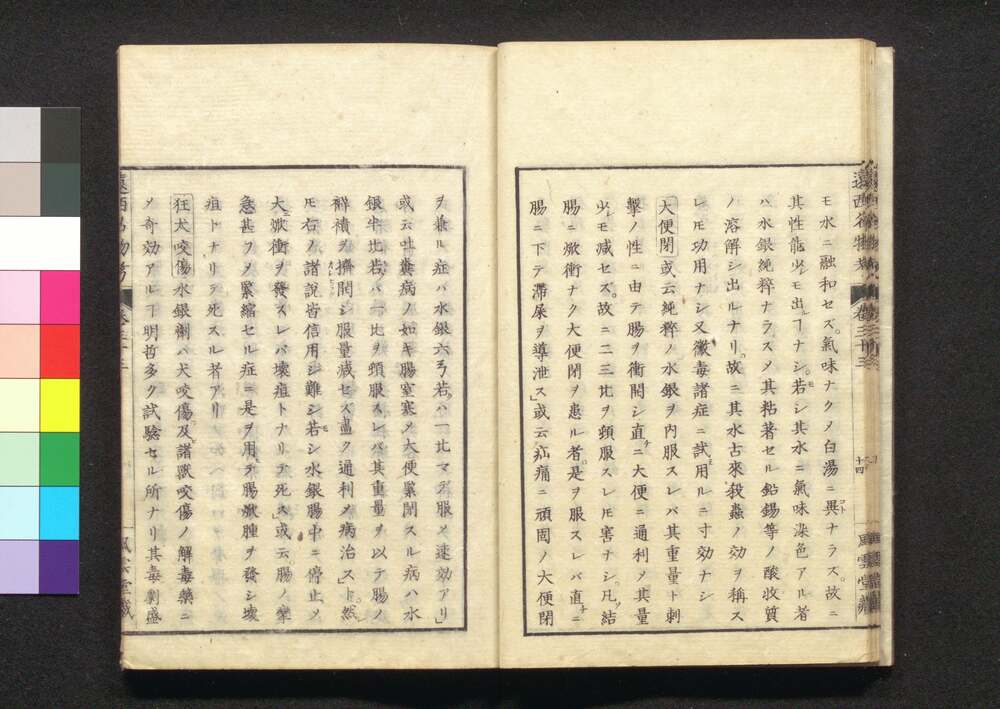 モ水ニ融和セズ。氣味ナクメ白湯ニ異ナラズ。故ニ
其性能少モ出ルヿナシ。若シ其水ニ氣味染色アル者
ハ水銀純粹ナラスメ其粘著セル鉛錫等ノ酸收質
ノ溶解シ出ルナリ。故ニ其水古來殺蟲ノ効ヲ稱ス
レモ功用ナシ又黴毒諸症ニ試用ルニ寸効ナシ
大便閉 或云純粹ノ水銀ヲ内服スレバ其重量ト刺
擊ノ性ニ由テ腸ヲ衝開シ直ニ大便ニ通利メ其量
少レモ減セズ。故ニ二三比ヲ頻服スレモ害ナシ。凡結
腸ニ焮衝ナク大便閉ヲ患ル者。是ヲ服スレバ直ニ
腸ニ下テ滯屎ヲ導泄ス」或云疝痛ニ頑固ノ大便閉
ヲ兼ル症バ水銀六弓若ハ一比マデ服メ速効アリ」
或云吐糞病ノ如キ腸窒塞メ大便緊閉スル病ハ水
銀半比若バ一比ヲ頻服スレバ其重量ヲ以テ腸ノ
襞積ヲ擠開シ服量減セズ盡ク通利メ病治ス」ト然
モ右ノ諸説皆信用シ難シ若シ水銀腸中ニ停止メ
大ニ焮衝ヲ發スレバ壞疽トナリテ死ス」或云腸ノ攣
急甚ヲメ緊縮セル症ニ是ヲ用テ腸焮腫ヲ發シ壞
疽トナリテ死スル者アリ
狂犬咬傷 水銀劑バ犬咬傷及諸獸咬傷ノ解毒藥ニ
メ奇効アルヿ明哲多ク試驗セル所ナリ其毒劇盛
卷三十三
十四
風雲堂藏